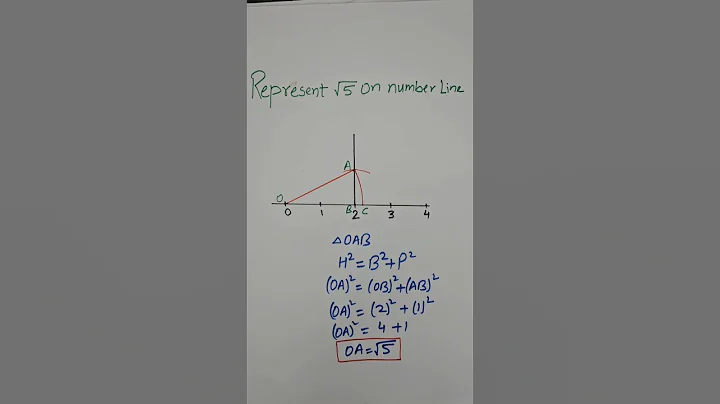 Represent √5 on number Line
A
O
B C
0 1 2 3 4
△OAB
H² = B² + P²
(OA)² = (OB)² + (AB)²
(OA)² = (2)² + (1)²
(OA)² = 4 + 1
OA = √5